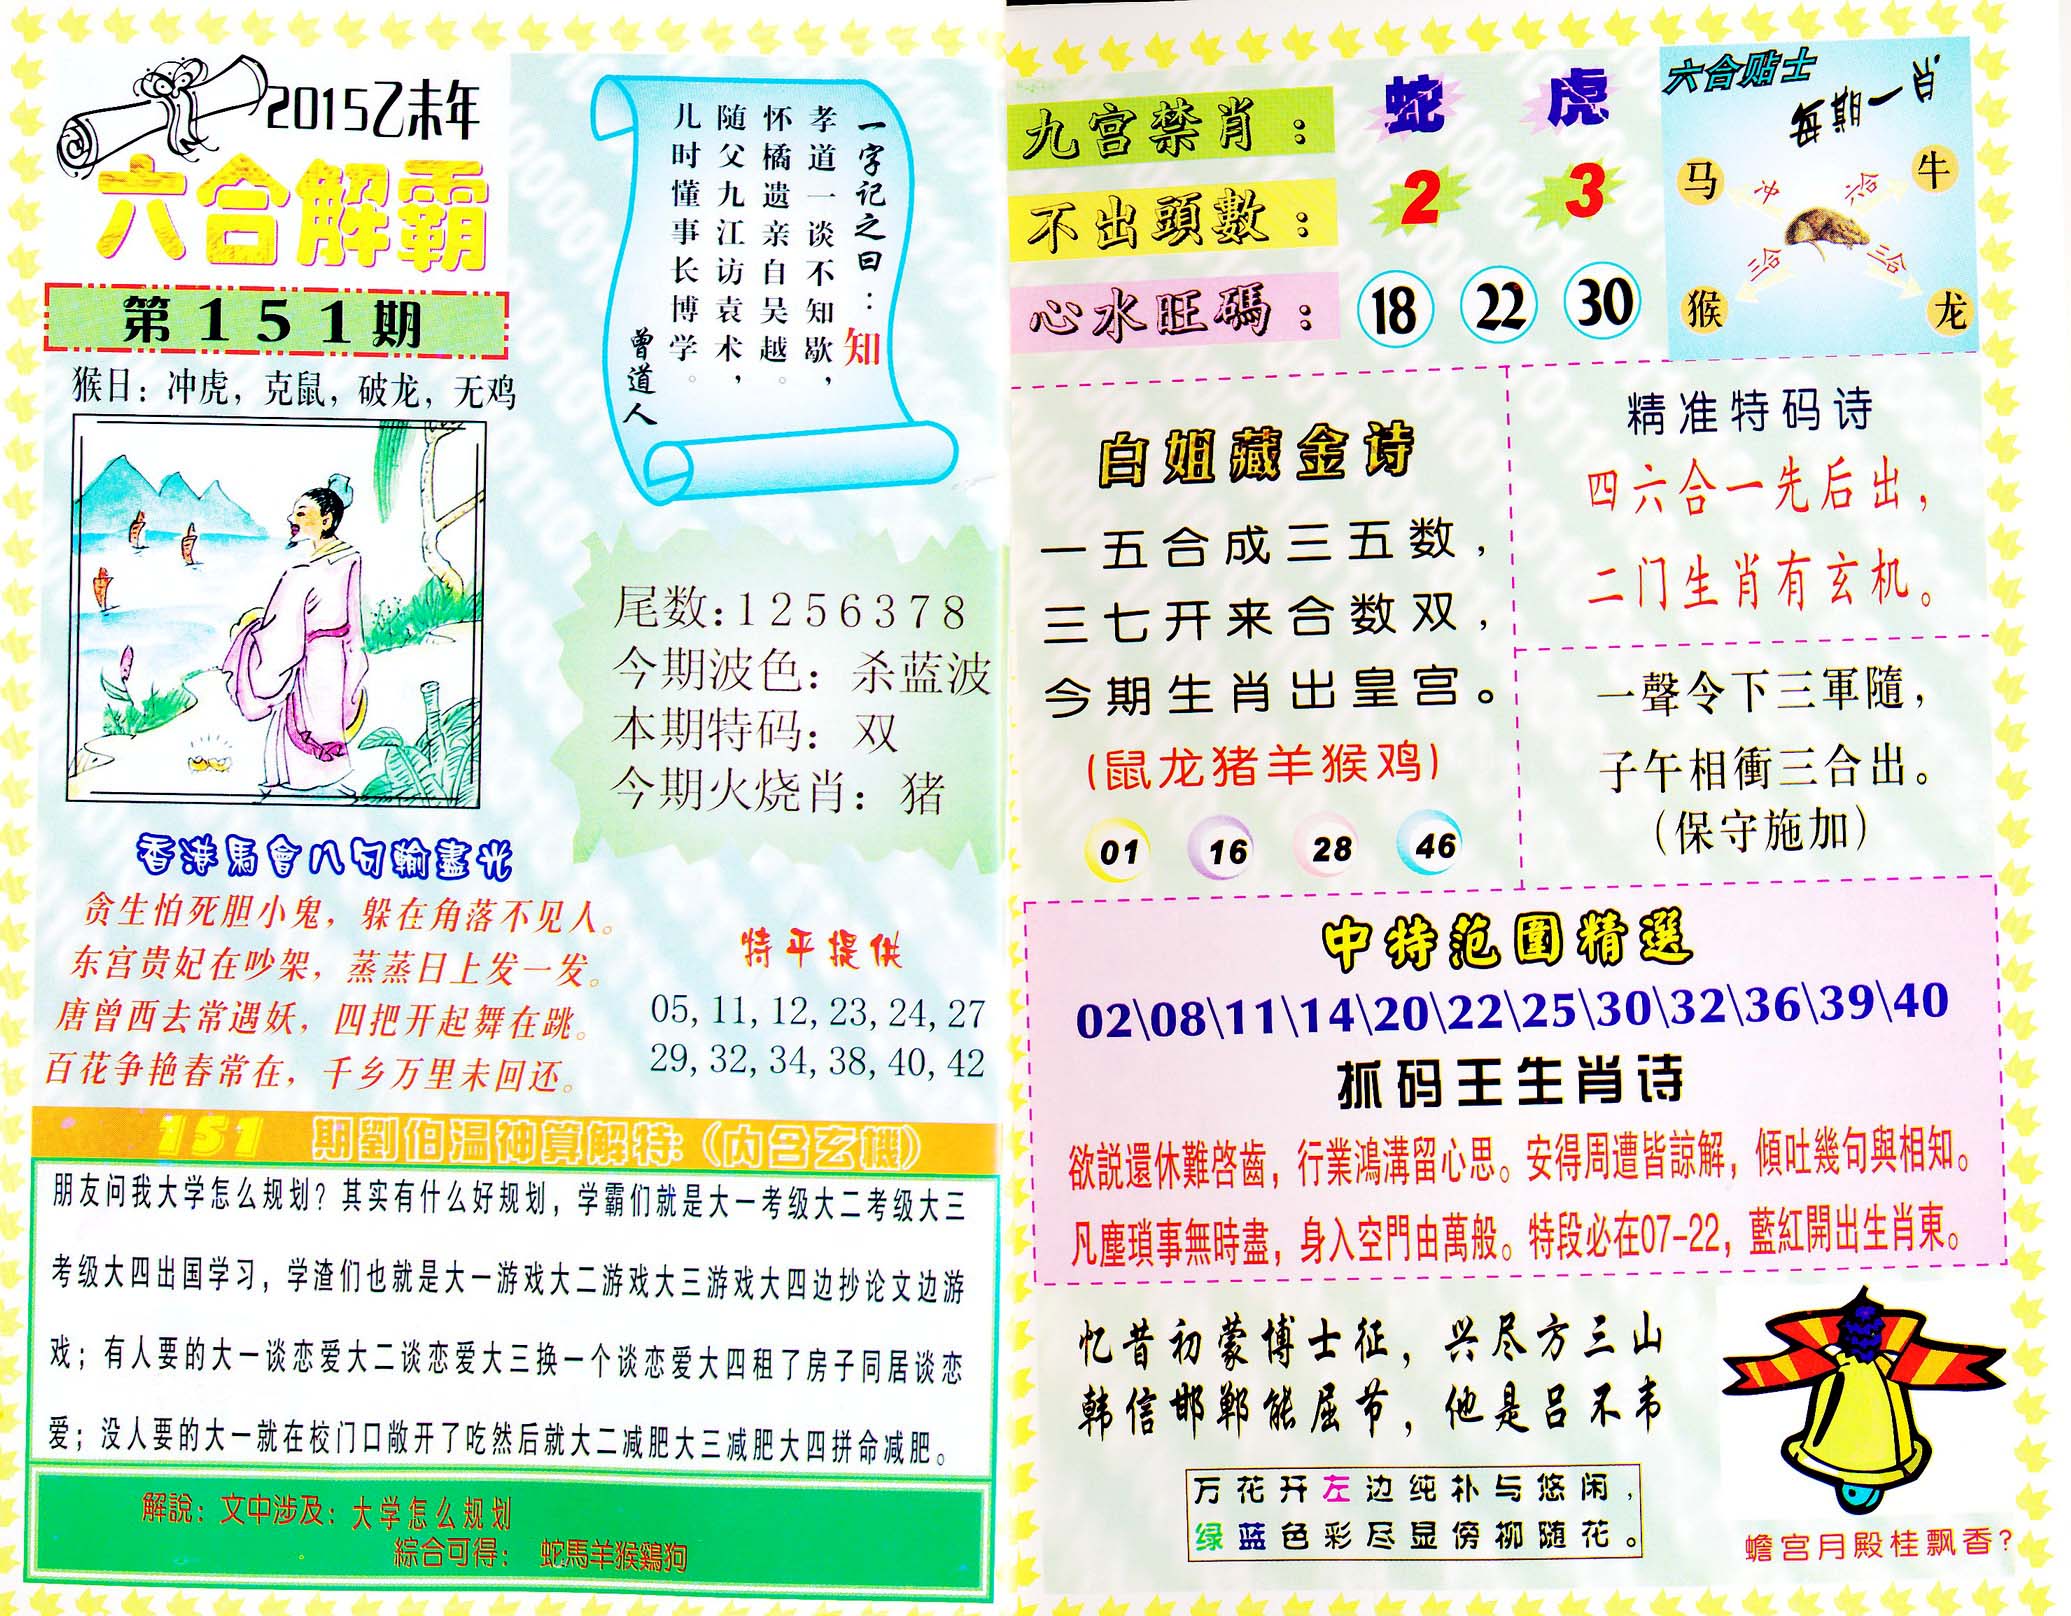 2015乙未年
六合解霸
第151期
猴日：冲虎，克鼠，破龙，无鸡
一字记之曰：知
孝道一谈不知歇，
怀橘遗亲自吴越。
随父九江访袁术，
儿时懂事长博学。
曾道人
尾数：1256378
今期波色：杀蓝波
本期特码：双
今期火烧肖：猪
香港馬會八句輸盡光
贪生怕死胆小鬼，躲在角落不见人。
东宫贵妃在吵架，蒸蒸日上发一发。
唐曾西去常遇妖，四把开起舞在跳。
百花争艳春常在，千乡万里未回还。
特平提供
05,11,12,23,24,27
29,32,34,38,40,42
151 期劉伯温神算解特：（内含玄機）
朋友问我大学怎么规划？其实有什么好规划，学霸们就是大一考级大二考级大三
考级大四出国学习，学渣们也就是大一游戏大二游戏大三游戏大四边抄论文边游
戏；有人要的大一谈恋爱大二谈恋爱大三换一个谈恋爱大四租了房子同居谈恋
爱；没人要的大一就在校门口敞开了吃然后就大二减肥大三减肥大四拼命减肥。
解說：文中涉及：大学怎么规划
綜合可得： 蛇馬羊猴鷄狗
九宫禁肖： 蛇 虎
不出頭數： 2 3
心水旺碼： 18 22 30
六合贴士
每期一肖
马 冲 六合 牛
猴 三合 三合 龙
白姐藏金诗
一五合成三五数，
三七开来合数双，
今期生肖出皇宫。
（鼠龙猪羊猴鸡）
01 16 28 46
精准特码诗
四六合一先后出，
二门生肖有玄机。
一聲令下三軍隨，
子午相衝三合出。
（保守施加）
中特范圍精選
02\08\11\14\20\22\25\30\32\36\39\40
抓码王生肖诗
欲説還休難啓齒，行業鴻溝留心思。安得周遭皆諒解，傾吐幾句與相知。
凡塵瑣事無時盡，身入空門由萬般。特段必在07-22，藍紅開出生肖東。
忆昔初蒙博士征，兴尽方三山
韩信邯郸能屈节，他是吕不韦
万花开左边纯朴与悠闲，
绿蓝色彩尽显傍柳随花。
蟾宫月殿桂飘香？